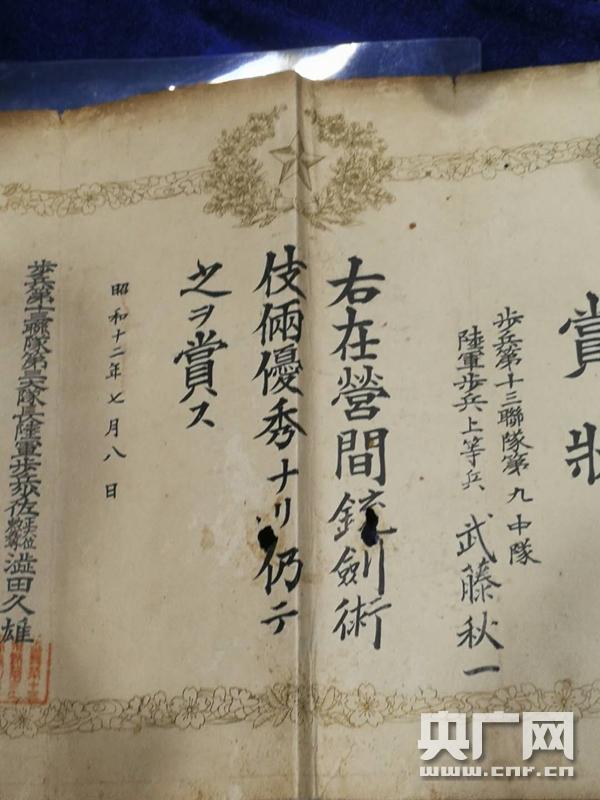 賞狀
歩兵第十三聯隊第九中隊
陸軍歩兵上等兵 武藤秋一
右在營間銃劍術
伎倆優秀ナリ仍テ
之ヲ賞ス
昭和十二年七月八日
歩兵第十三聯隊第三大隊長陸軍歩兵少佐正六位勲四等澁田久雄
央广网
www.cnr.cn